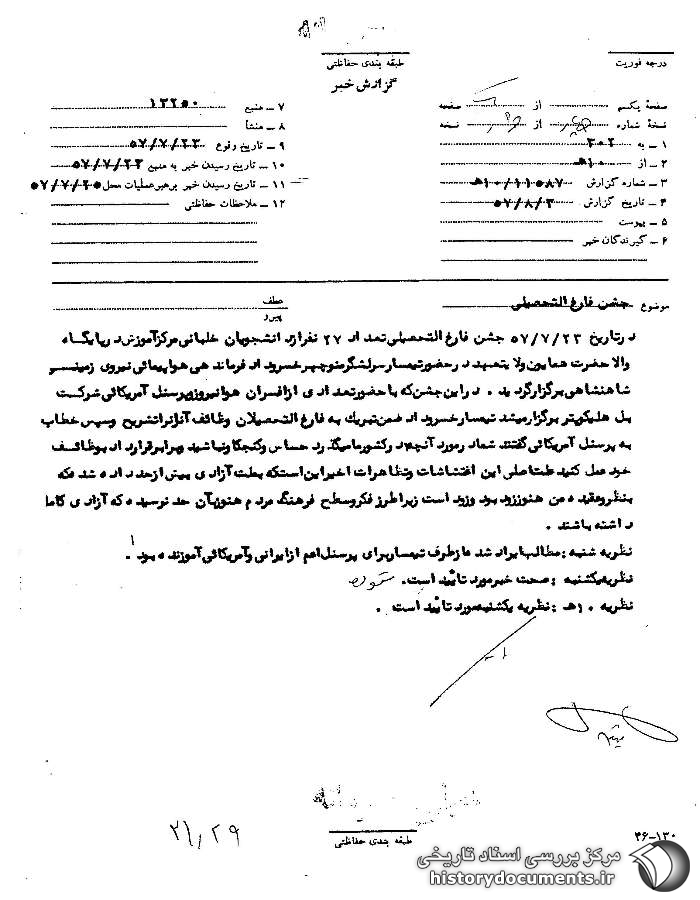 درجه فوریت
طبقه بندی حفاظتی
گزارش خبر
صفحهٔ یکم از صفحه
نسخهٔ شماره از نسخه
۱ ـ به ۳۰۲
۲ ـ از ۱۰ هـ
۳ ـ شماره گزارش ۱۰/۱۱۵۸۷ هـ
۴ ـ تاریخ گزارش ۵۷/۸/۳
۵ ـ پیوست
۶ ـ گیرندگان خبر
۷ ـ منبع ۱۳۲۵۰
۸ ـ منشأ
۹ ـ تاریخ وقوع ۵۷/۷/۲۳
۱۰ ـ تاریخ رسیدن خبر به منبع ۵۷/۷/۲۳
۱۱ ـ تاریخ رسیدن خبر برهبر عملیات محل ۵۷/۷/۲۵
۱۲ ـ ملاحظات حفاظتی
موضوع جشن فارغ التحصیلی
عطف
پیرو
در تاریخ ۵۷/۷/۲۳ جشن فارغ التحصیلی تعداد ۲۷ نفر از دانشجویان خلبانی مرکز آموزش در پایگاه
والاحضرت همایون ولایتعهد در حضور تیمسار سرلشگر منوچهر خسروداد فرماندهی هواپیمائی نیروی زمینی
شاهنشاهی برگزار گردید . در این جشن که با حضور تعدادی از افسران هوانیروز و پرسنل آمریکائی شرکت
بل هلیکوپتر برگزار میشد تیمسار خسروداد ضمن تبریک به فارغ التحصیلان وظائف آنانرا تشریح و سپس خطاب
به پرسنل آمریکائی گفتند شما در مورد آنچه در کشور ما میگذرد حساس و کنجکاو نباشید و برابر قرارداد بوظائف
خود عمل کنید علت اصلی این اغتشاشات و تظاهرات اخیر این استکه بعلت آزادی بیش از حد داده شده که
بنظر و عقیده من هنوز زود بود و زود است زیرا طرز فکر و سطح فرهنگ مردم هنوز بآن حد نرسیده که آزادی کامل
داشته باشند .
نظریه شنبه : مطالب ایراد شده از طرف تیمسار برای پرسنل اعم از ایرانی و آمریکائی آموزنده بود .
نظریه یکشنبه : صحت خبر مورد تائید است.
نظریه ۱۰ هـ : نظریه یکشنبه مورد تائید است .
۲۱,۲۹
طبقه بندی حفاظتی
۴۶-۱۳۰
مرکز بررسی اسناد تاریخی
historydocuments.ir